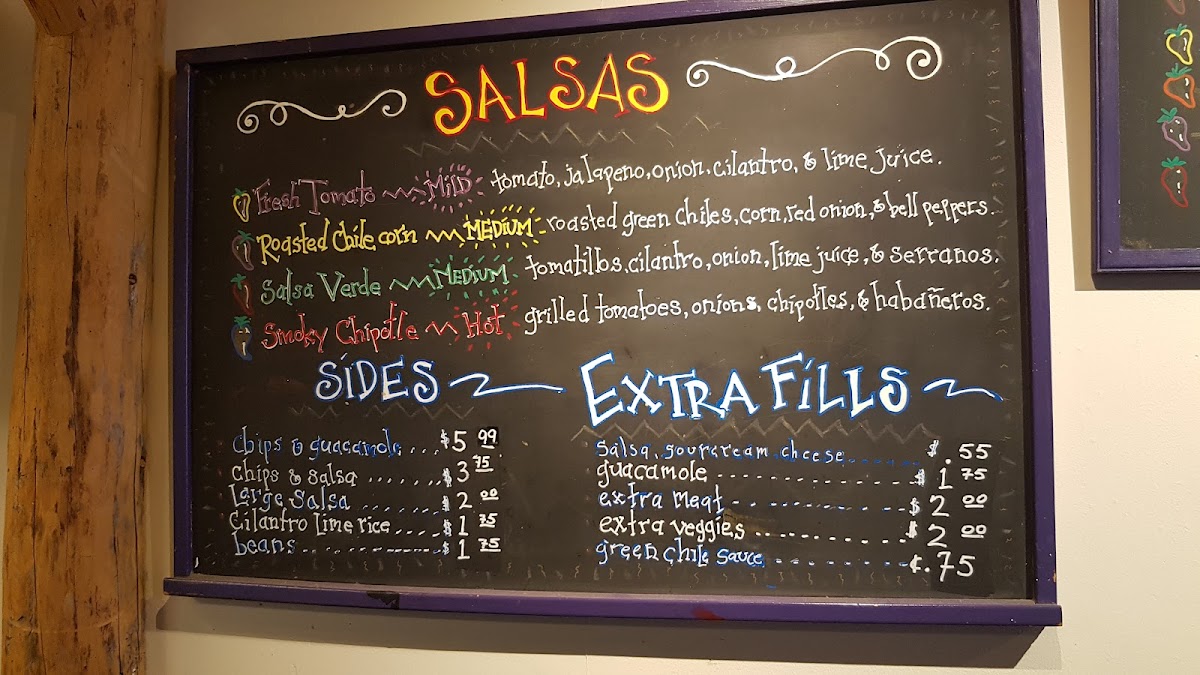 SALSAS
Fresh Tomato MILD tomato, jalapeno, onion, cilantro, & lime juice.
Roasted Chile corn MEDIUM roasted green chiles, corn, red onion, & bell peppers.
Salsa Verde MEDIUM tomatillos, cilantro, onion, lime juice, & serranos.
Smoky Chipotle Hot grilled tomatoes, onions, chipotles, & habañeros.
SIDES
chips & guacamole... $5 99
chips & salsa ...... $3 75
large salsa ....... $2 00
Cilantro lime rice .... $1 75
beans .......... $1 75
EXTRA FILLS
salsa, sourcream, cheese ...... $.55
guacamole ......... $1 75
extra meat ......... $2 00
extra veggies ......... $2 00
green chile sauce ......... ¢.75